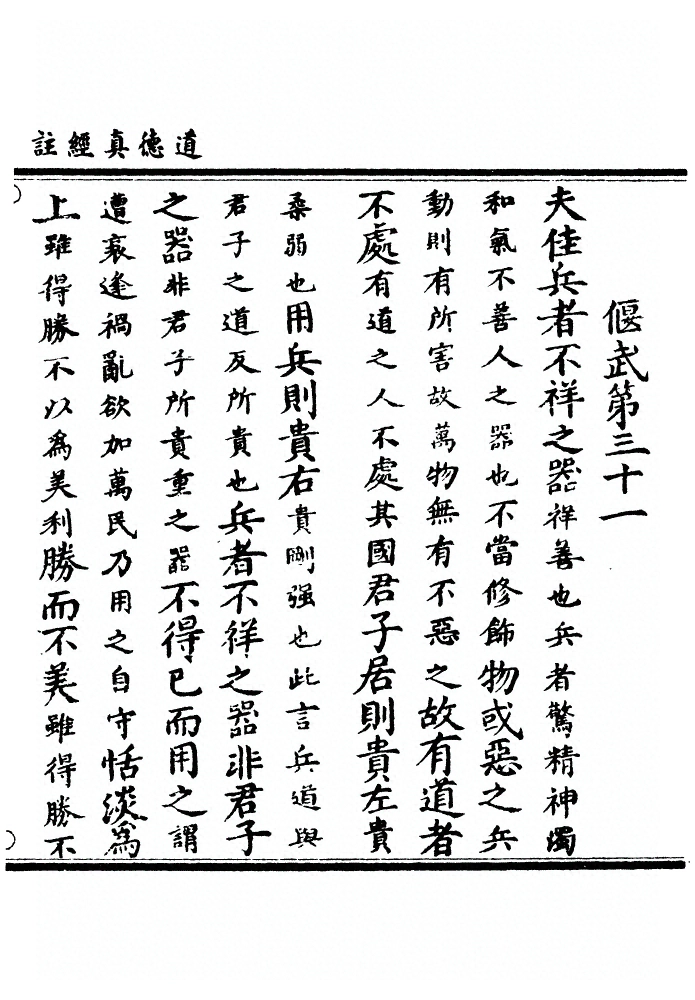 道德真經註
偃武第三十一
夫佳兵者不祥之器祥善也兵者驚精神濁
和氣不善人之器也不當修飾物或惡之兵
動則有所害故萬物無有不惡之故有道者
不處有道之人不處其國君子居則貴左貴
柔弱也用兵則貴右貴剛强也此言兵道與
君子之道反所貴也兵者不祥之器非君子
之器非君子所貴重之器不得已而用之謂
遭衰逢禍亂欲加萬民乃用之自守恬淡爲
上雖得勝不以爲美利勝而不美雖得勝不